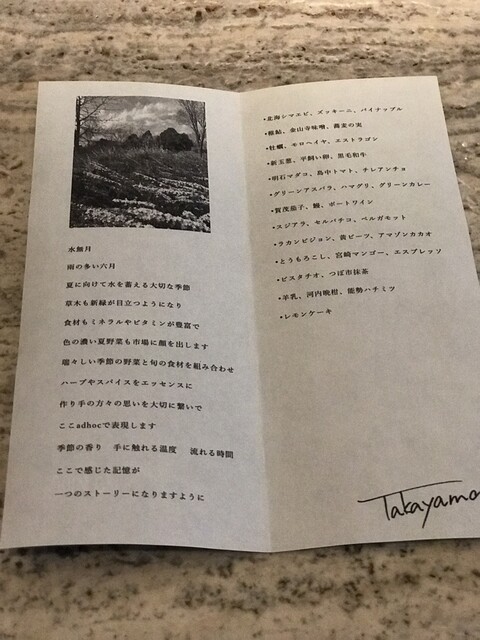 水無月
雨の多い六月
夏に向けて水を蓄える大切な季節
草木も新緑が目立つようになり
食材もミネラルやビタミンが豊富で
色の濃い夏野菜も市場に顔を出します
瑞々しい季節の野菜と旬の食材を組み合わせ
ハーブやスパイスをエッセンスに
作り手の方々の思いを大切に繋いで
ここadhocで表現します
季節の香り 手に触れる温度 流れる時間
ここで感じた記憶が
一つのストーリーになりますように
・北海シマエビ、ズッキーニ、パイナップル
・稚鮎、金山寺味噌、蕎麦の実
・牡蠣、モロヘイヤ、エストラゴン
・新玉葱、平飼い卵、黒毛和牛
・明石マダコ、島中トマト、チレアンチョ
・グリーンアスパラ、ハマグリ、グリーンカレー
・賀茂茄子、鰻、ポートワイン
・スジアラ、セルバチコ、ベルガモット
・ラカンピジョン、黄ビーツ、アマゾンカカオ
・とうもろこし、宮崎マンゴー、エスプレッソ
・ピスタチオ、つぼ市抹茶
・羊乳、河内晩柑、能勢ハチミツ
・レモンケーキ
Takayama